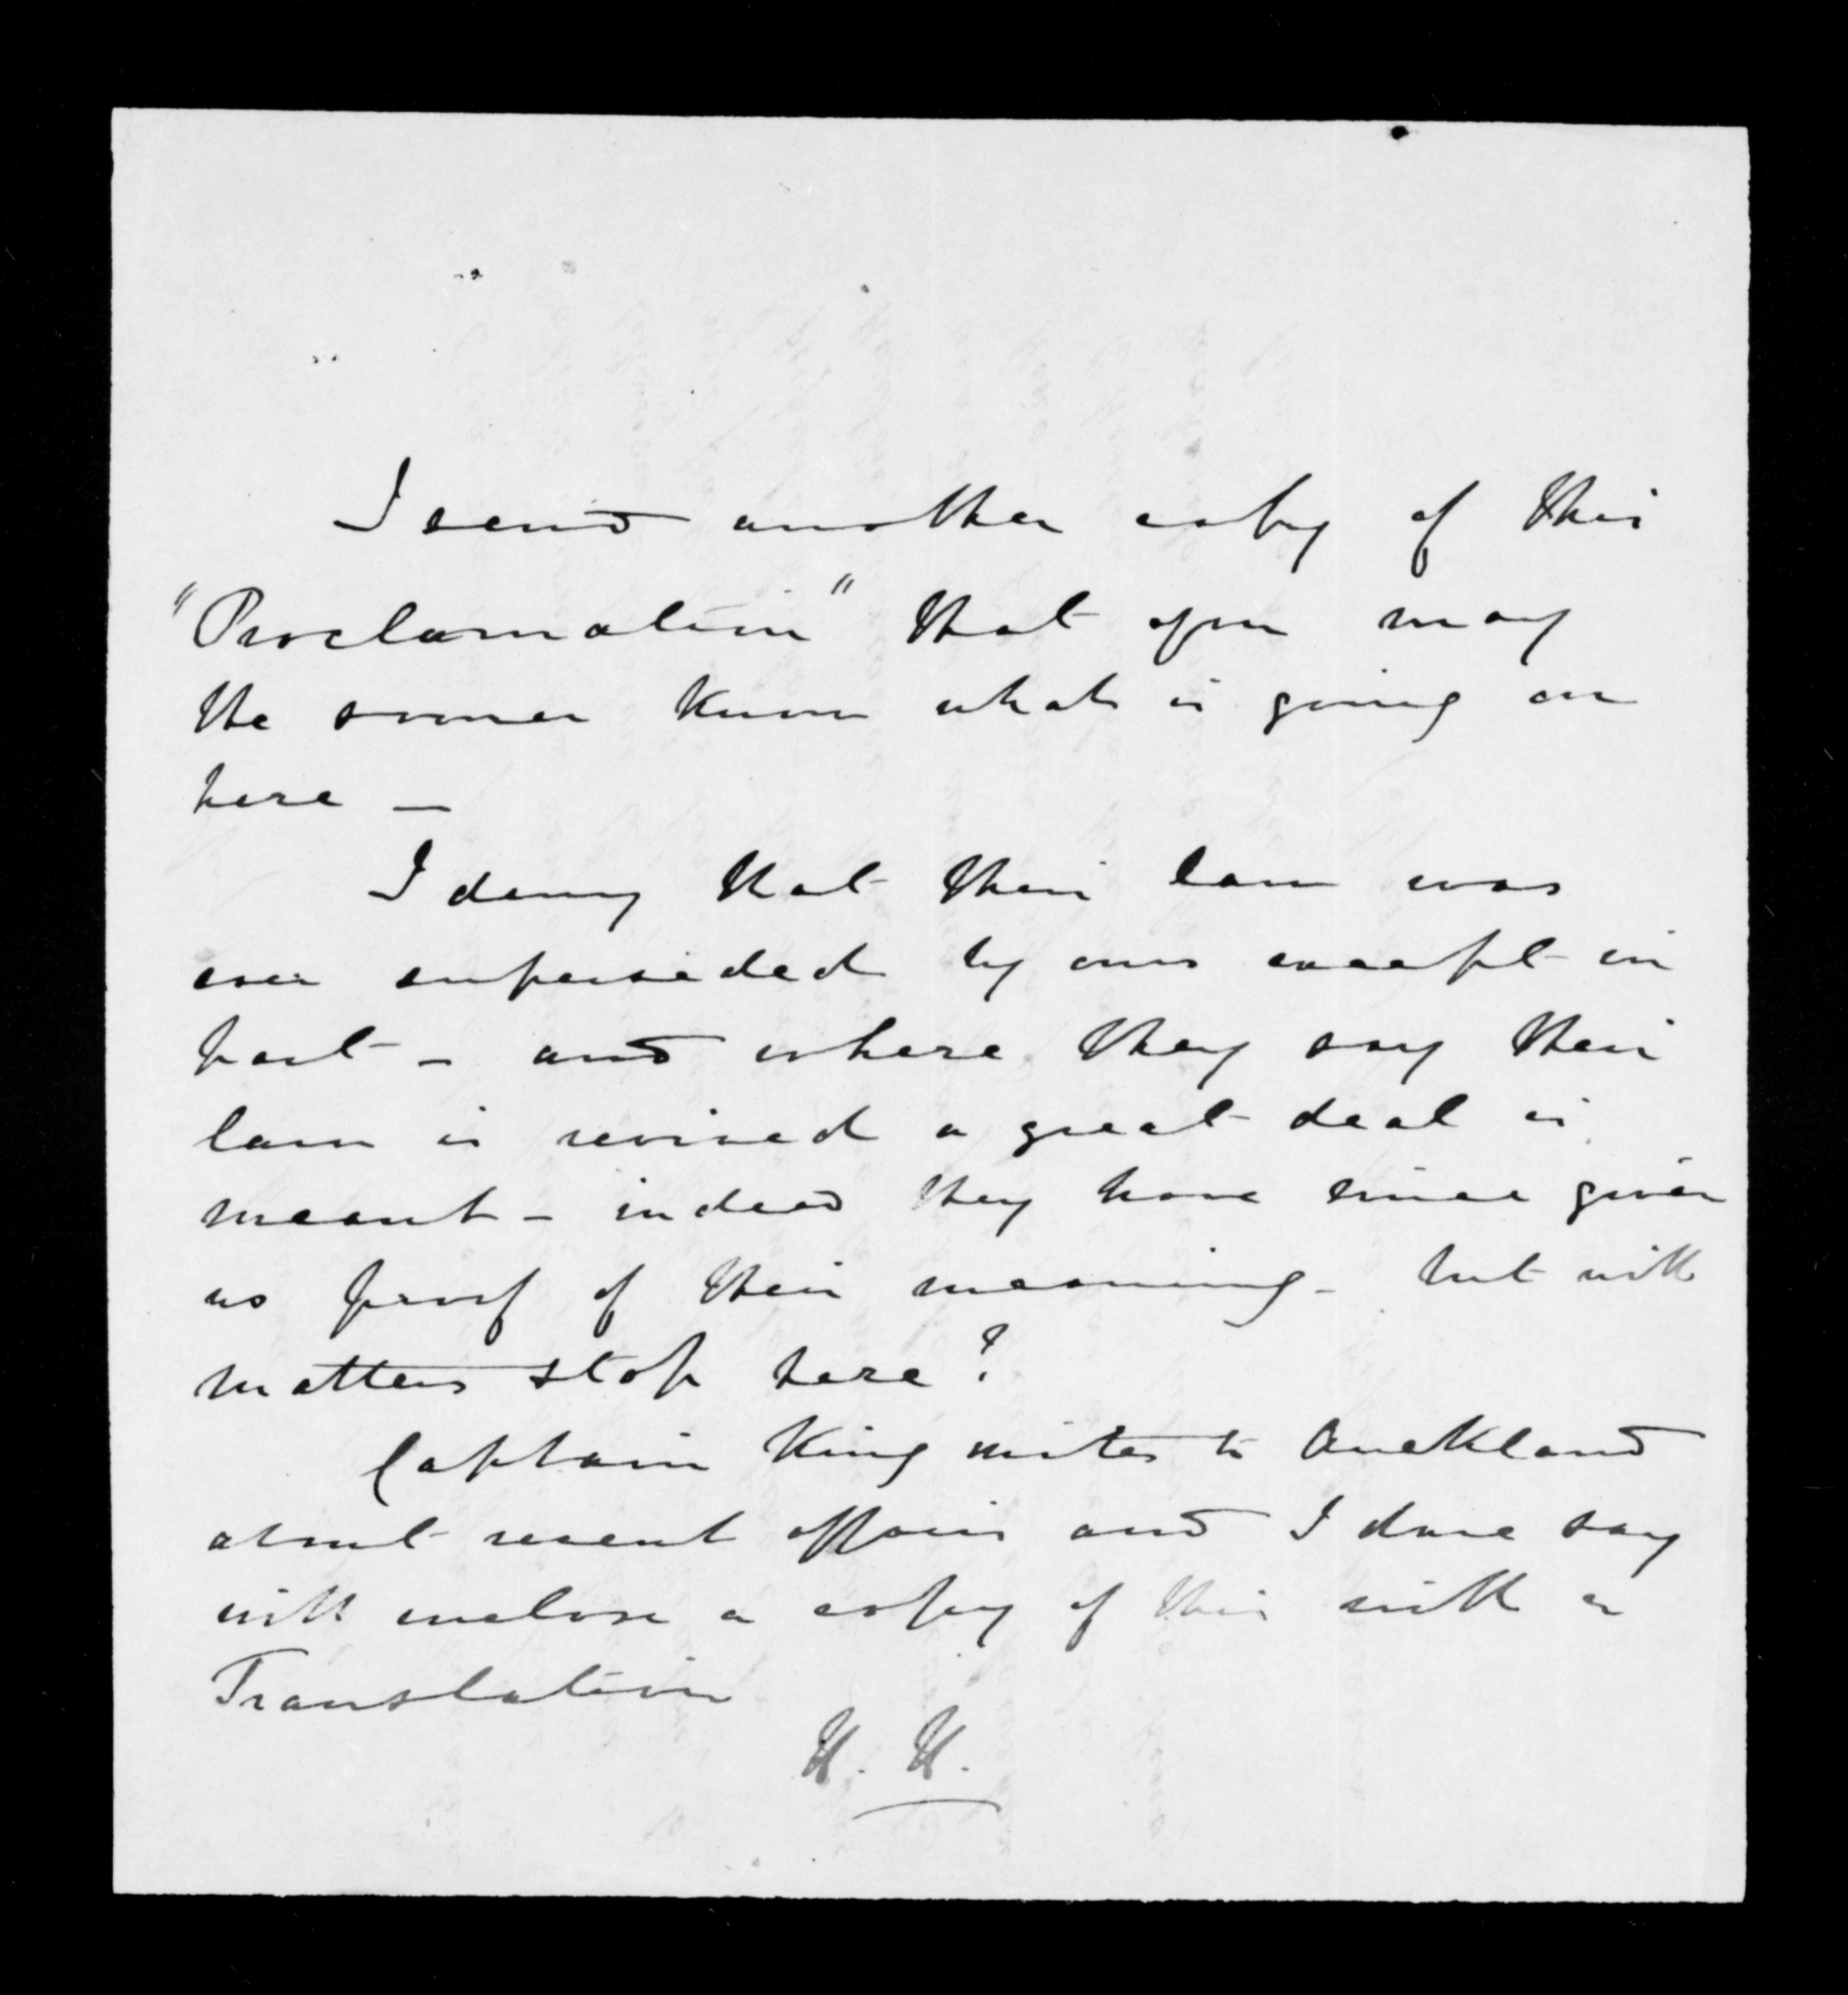 I send another copy of this
"Proclamation" that you may
the sooner know what is going on
here —
I deny that their law was
ever superseded by ours except in
part - and where they say their
law is revived a great deal is
meant - indeed they have since given
us proof of their meaning - but will
matters stop here?
Captain King writes to Auckland
about recent affairs and I dare say
will enclose a copy of this with a
Translation
H. H.